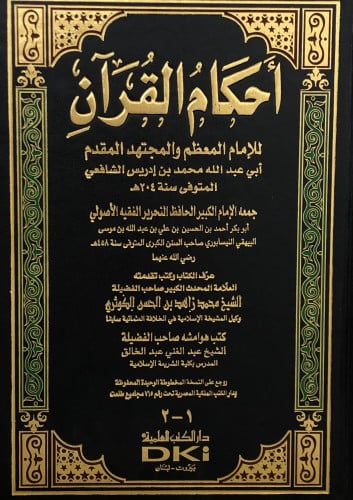 أحكام القرآن
للإمام المعظم والمجتهد المقدم
أبي عبد الله محمد بن إدريس الشافعي
المتوفى سنة ٢٠٤هـ
جمعه الإمام الكبير الحافظ النحرير الفقيه الأصولي
أبو بكر أحمد بن الحسين بن علي بن عبد الله بن موسى
البيهقي النيسابوري صاحب السنن الكبرى المتوفى سنة ٤٥٨هـ
رضي الله عنهما
عرّف الكتاب وكتب تقدمته
العلامة المحدث الكبير صاحب الفضيلة
الشيخ محمد زاهد بن الحسن الكوثري
وكيل المشيخة الإسلامية في الخلافة العثمانية سابقا
كتب هوامشه صاحب الفضيلة
الشيخ عبد الغني عبد الخالق
المدرس بكلية الشريعة الإسلامية
روجع على النسخة المخطوطة الوحيدة المحفوظة
بدار الكتب الملكية المصرية تحت رقم ٧١٨ مجاميع طلعت
١-٢
دار الكتب العلمية
DKi
بيروت - لبنان